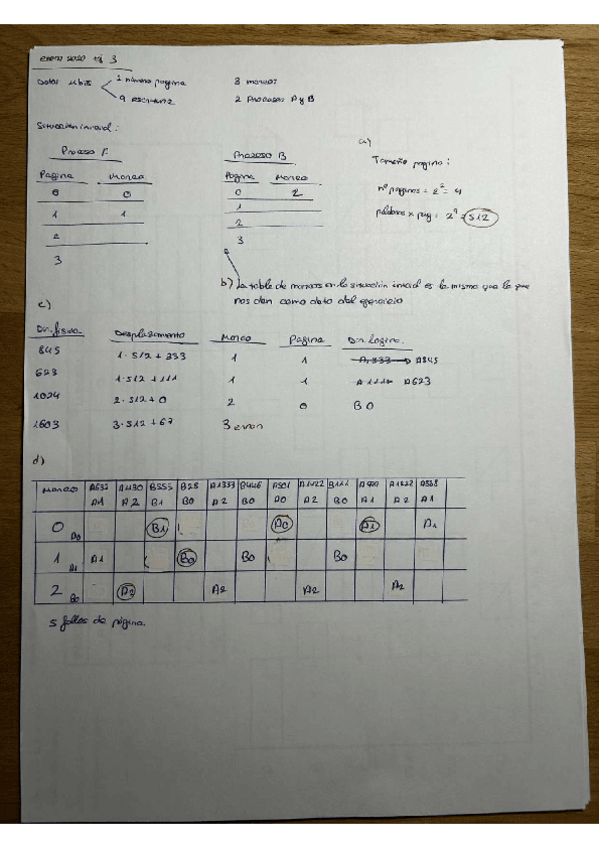 enero 2020 ej 3
Datos 11 bits
2 número pagina
9 escritura
3 marcos
2 Procesos A y B
Situación inicial:
Proceso A
Pagina Marco
0 0
1 1
2
3
Proceso B
Pagina Marco
0 2
1
2
3
a)
Tamaño pagina:
nº paginas = 2² = 4
palabras x pag = 2⁹ = 512
b) La tabla de marcos en la situación inicial es la misma que la que
nos dan como dato del ejercicio
c)
Dir. fisica Desplazamiento Marco Pagina Dir. logica.
845 1·512 + 333 1 1 A 333 → A845
623 1·512 + 111 1 1 A 111 → A623
1024 2·512 + 0 2 0 B 0
1603 3·512 + 67 3 error
d)
Marco A632 A1130 B555 B25 A1333 B446 A501 A1422 B111 A1622 A568
A1 A2 B1 B0 A2 B0 A0 A2 B0 A1 A2 A1
0 A0 B1 A0 A1 A1
1 A1 A1 B0 B0 B0
2 B0 A2 A2 A2 A2
5 fallos de página.